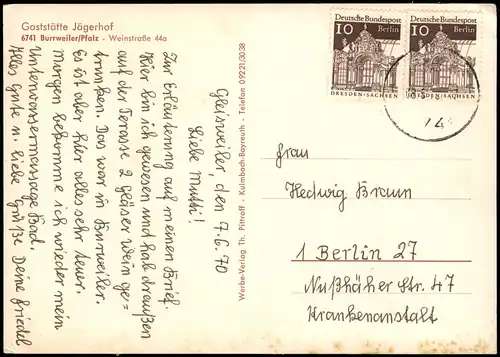 Gaststätte Jägerhof
6741 Burrweiler/Pfalz - Weinstraße 44a
Gleisweiler, den 7.6.70
Liebe Mutti!
Zur Erläuterung auf meinen Brief.
Hier bin ich gewesen und hab draußen
auf der Terasse 2 gläser Wein ge=
trunken. Das war in Burrweiler.
Es ist aber hier alles sehr teuer.
Morgen bekomme ich wieder mein
Unterwassermassage Bad.
Alles Gute u. liebe Grüße Deine Friedel
Werbe-Verlag Th. Pittroff - Kulmbach-Bayreuth - Telefon 09221/3038
Deutsche Bundespost
10 Berlin
DRESDEN/SACHSEN
Deutsche Bundespost
10 Berlin
DRESDEN/SACHSEN
Frau
Hedwig Braun
1 Berlin 27
Nußhäher Str. 47
Krankenanstalt